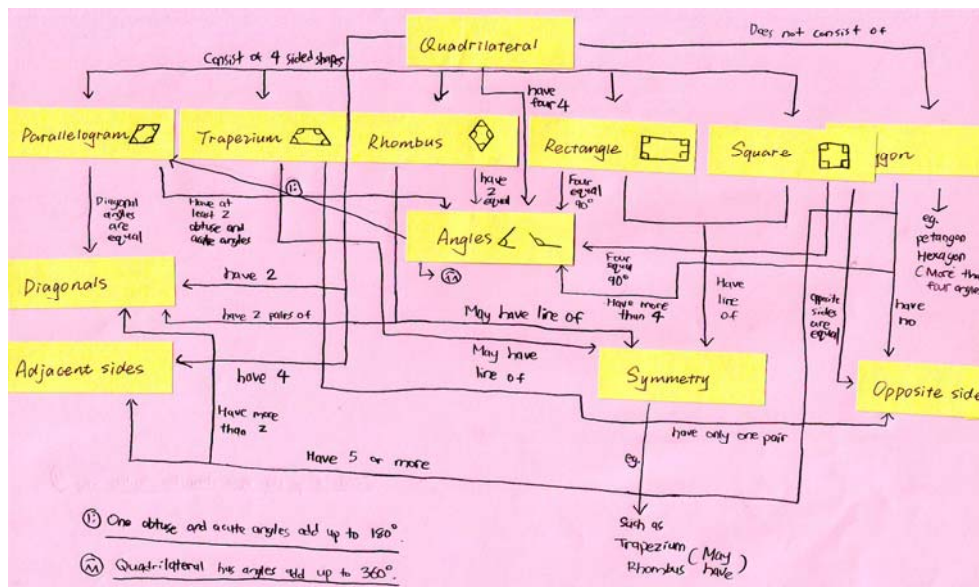 Quadrilateral
Does not consist of
Consist of 4 sided shapes
have
four 4
Parallelogram
Trapezium
Rhombus
Rectangle
Square
ygon
Diagonal
angles
are
equal
Have at
least 2
obtuse and
acute angles
i:
have
2
equal
Four
equal
90°
Angles
ii
Four
equal
90°
Have more
than 4
Have
line
of
opposite
sides
are
equal
have
no
eg.
petangon
Hexagon
(More tha
four angles
Diagonals
have 2
have 2 pairs of
May have line of
May have
line of
Adjacent sides
have 4
Symmetry
Opposite side
Have more
than 2
have only one pair
Have 5 or more
eg.
Such as
Trapezium (May
Rhombus have)
i: One obtuse and acute angles add up to 180°.
ii Quadrilateral has angles add up to 360°.